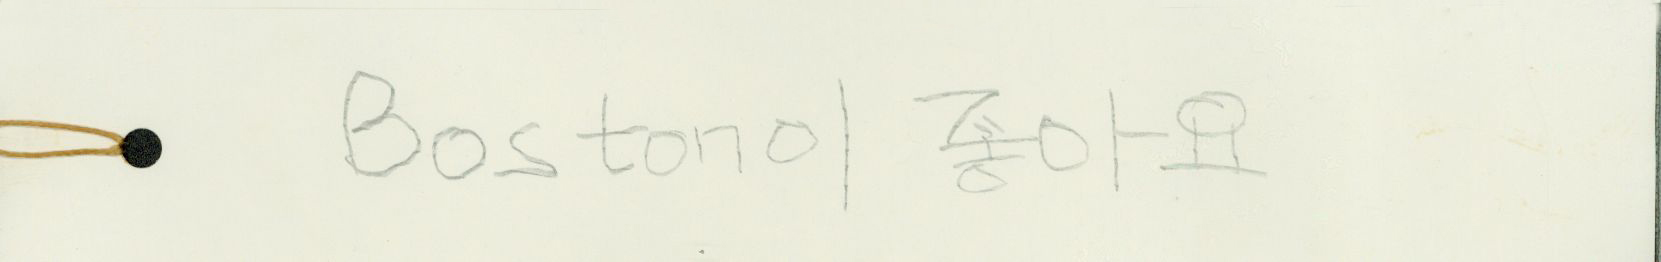 Boston이 좋아요